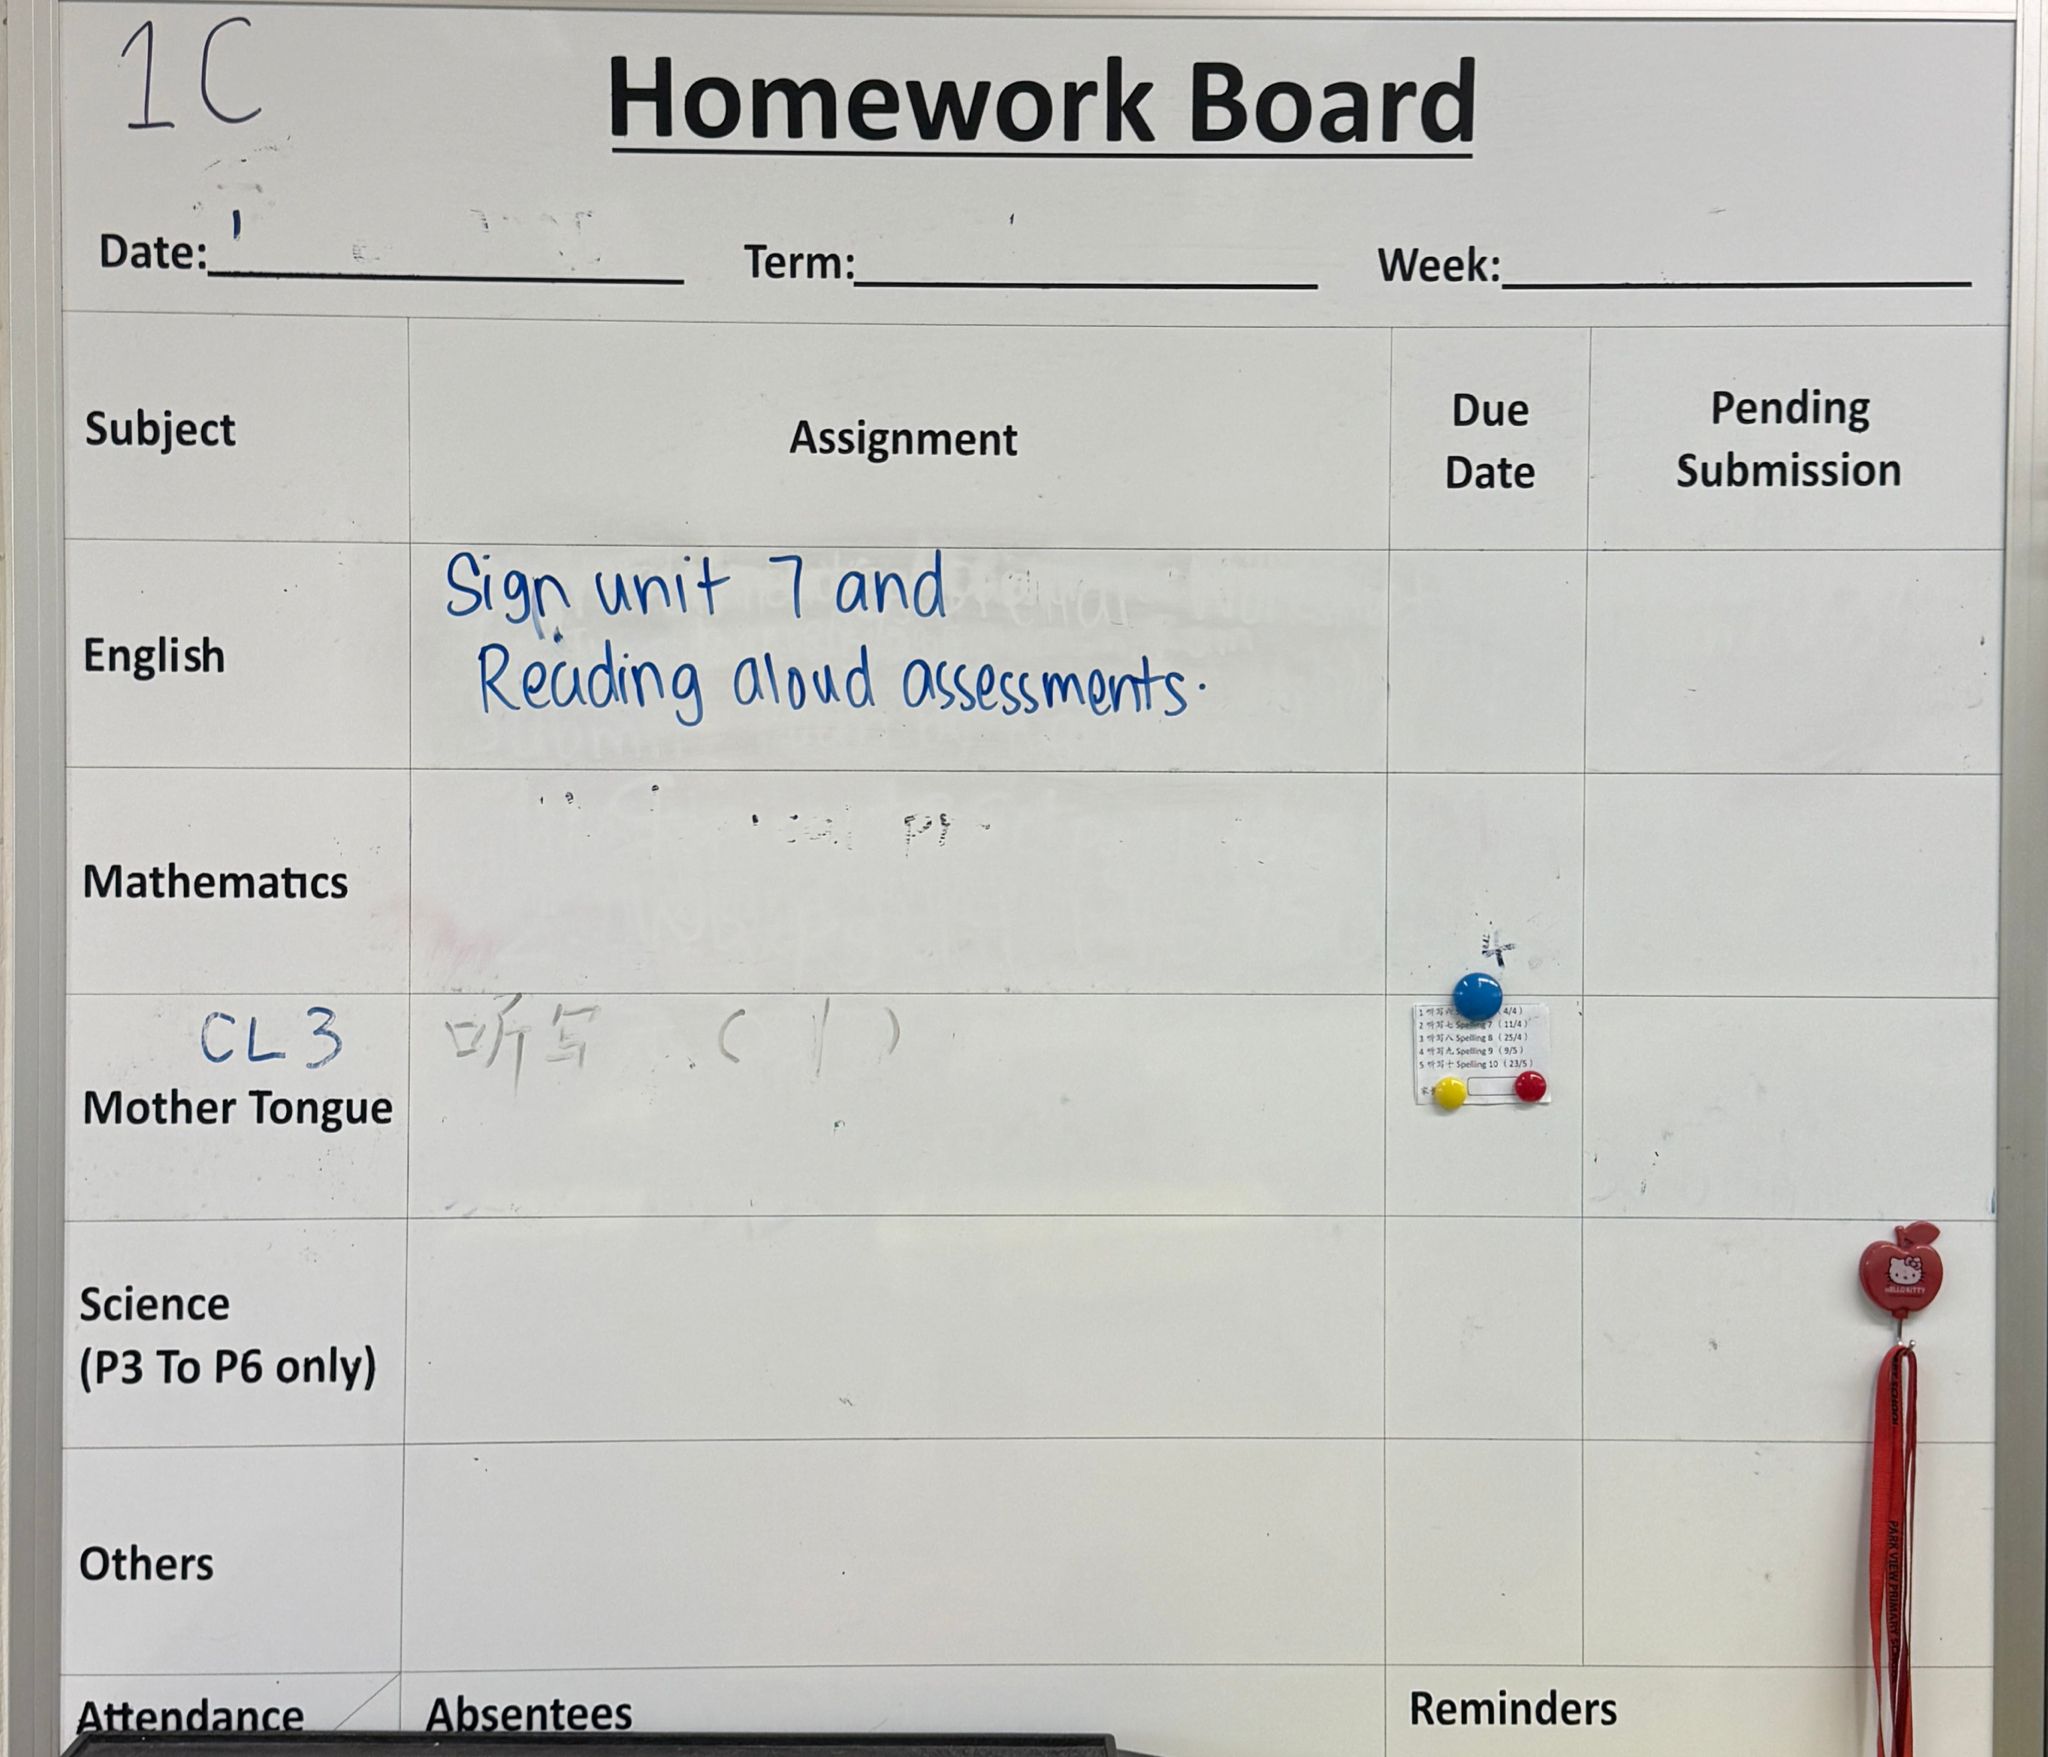 1C
Homework Board
Date:
Term:
Week:
Subject
Assignment
Due
Date
Pending
Submission
English
Sign unit 7 and
Reading aloud assessments.
Mathematics
CL 3
Mother Tongue
听写 ( )
4/4)
2 听写七 Spelling 7 (11/4)
3 听写八 Spelling 8 (25/4)
4 听写九 Spelling 9 (9/5)
5 听写十 Spelling 10 (23/5)
Science
(P3 To P6 only)
HELLO KITTY
PARK VIEW PRIMARY
Others
Attendance
Absentees
Reminders